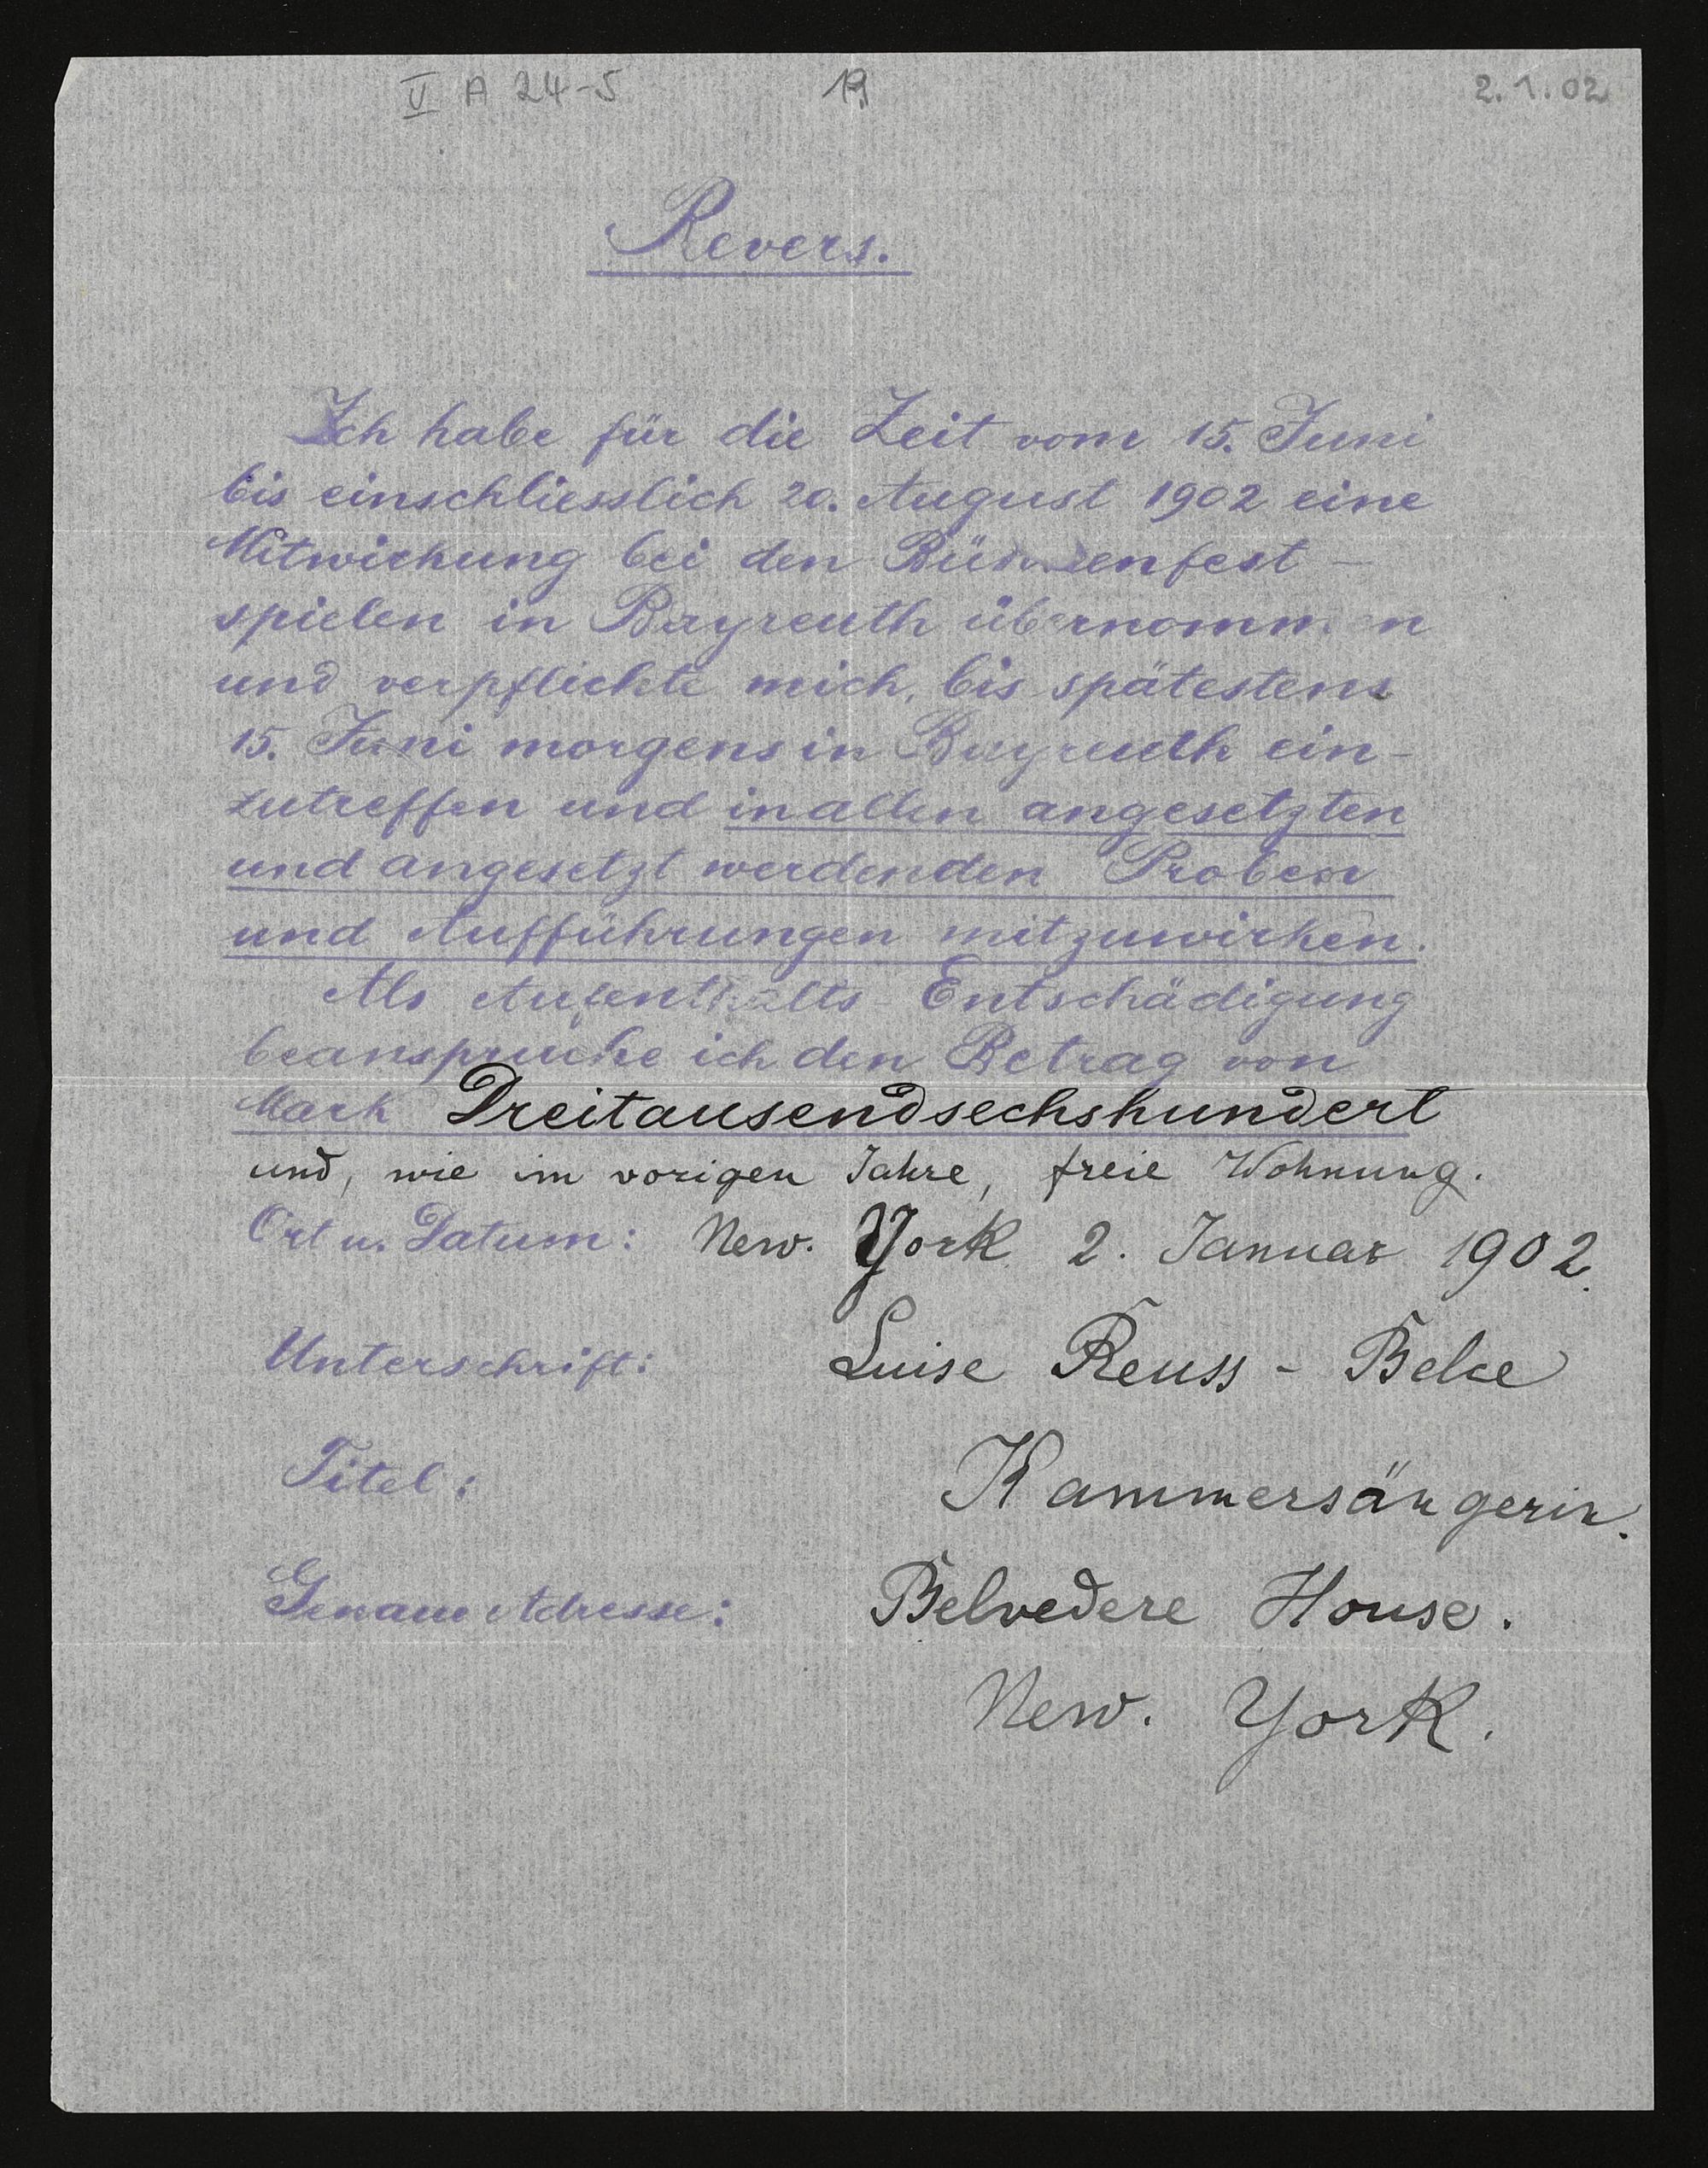 V A 24-5 19 2.1.02
Revers.
Ich habe für die Zeit vom 15. Juni
bis einschliesslich 20. August 1902 eine
Mitwirkung bei den Bühnenfest-
spielen in Bayreuth übernommen
und verpflichte mich, bis spätestens
15. Juni morgens in Bayreuth ein-
zutreffen und in allen angesetzten
und angesetzt werdenden Proben
und Aufführungen mitzuwirken.
Als Aufenthalts-Entschädigung
beanspruche ich den Betrag von
Mark Dreitausendsechshundert
und, wie im vorigen Jahre, freie Wohnung.
Ort u. Datum: New. York 2. Januar 1902.
Unterschrift: Luise Reuss-Belce
Titel: Kammersängerin.
Genaue Adresse: Belvedere House.
New. York.